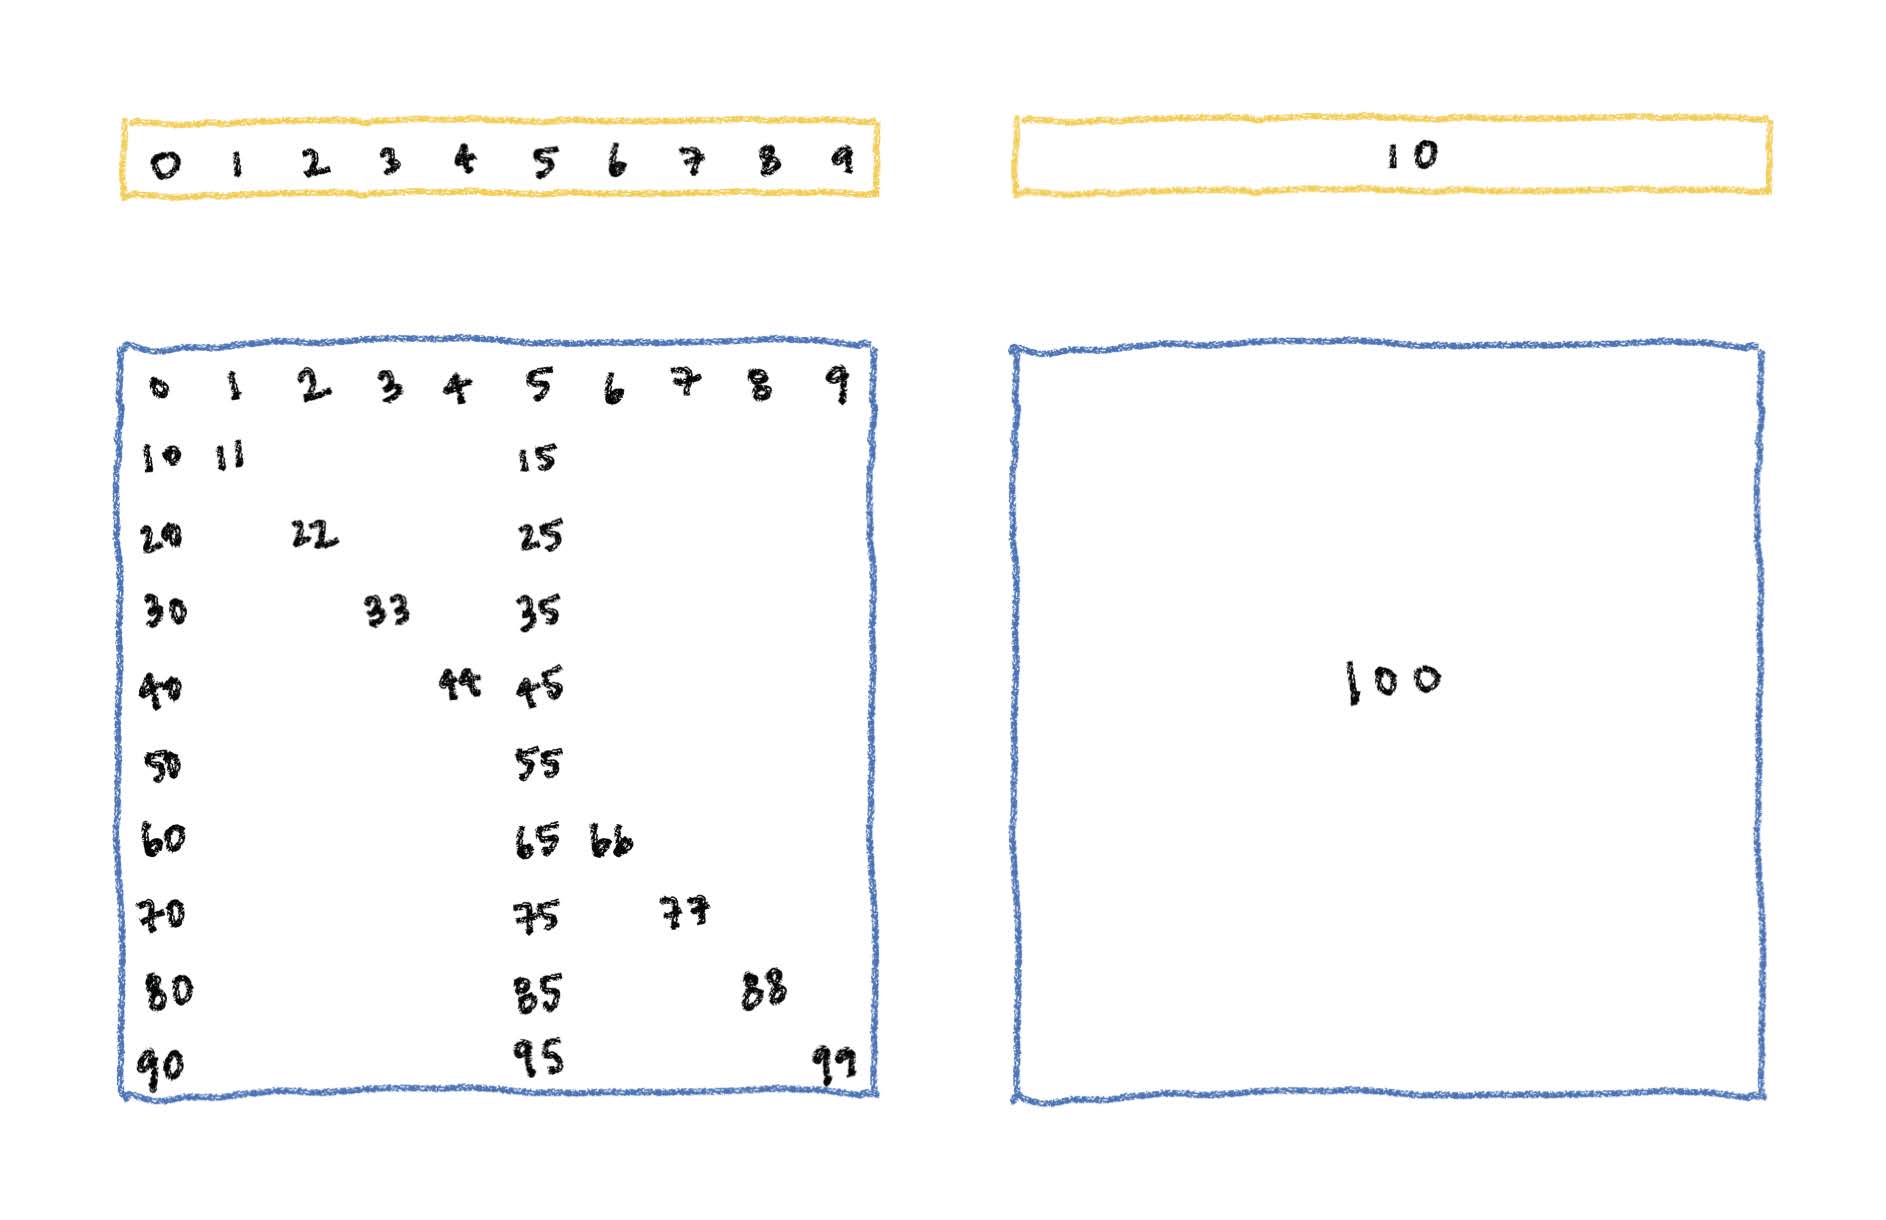 0 1 2 3 4 5 6 7 8 9
10
0 1 2 3 4 5 6 7 8 9
10 11 15
20 22 25
30 33 35
40 44 45
50 55
60 65 66
70 75 77
80 85 88
90 95 99
100